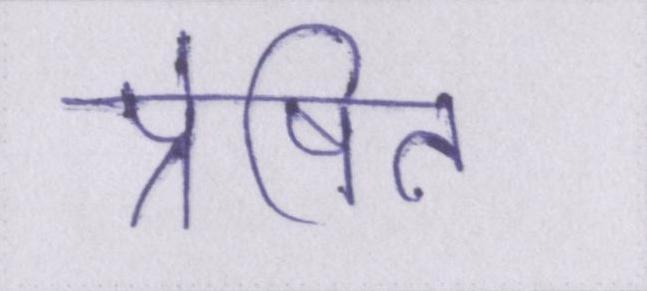 प्रेषित